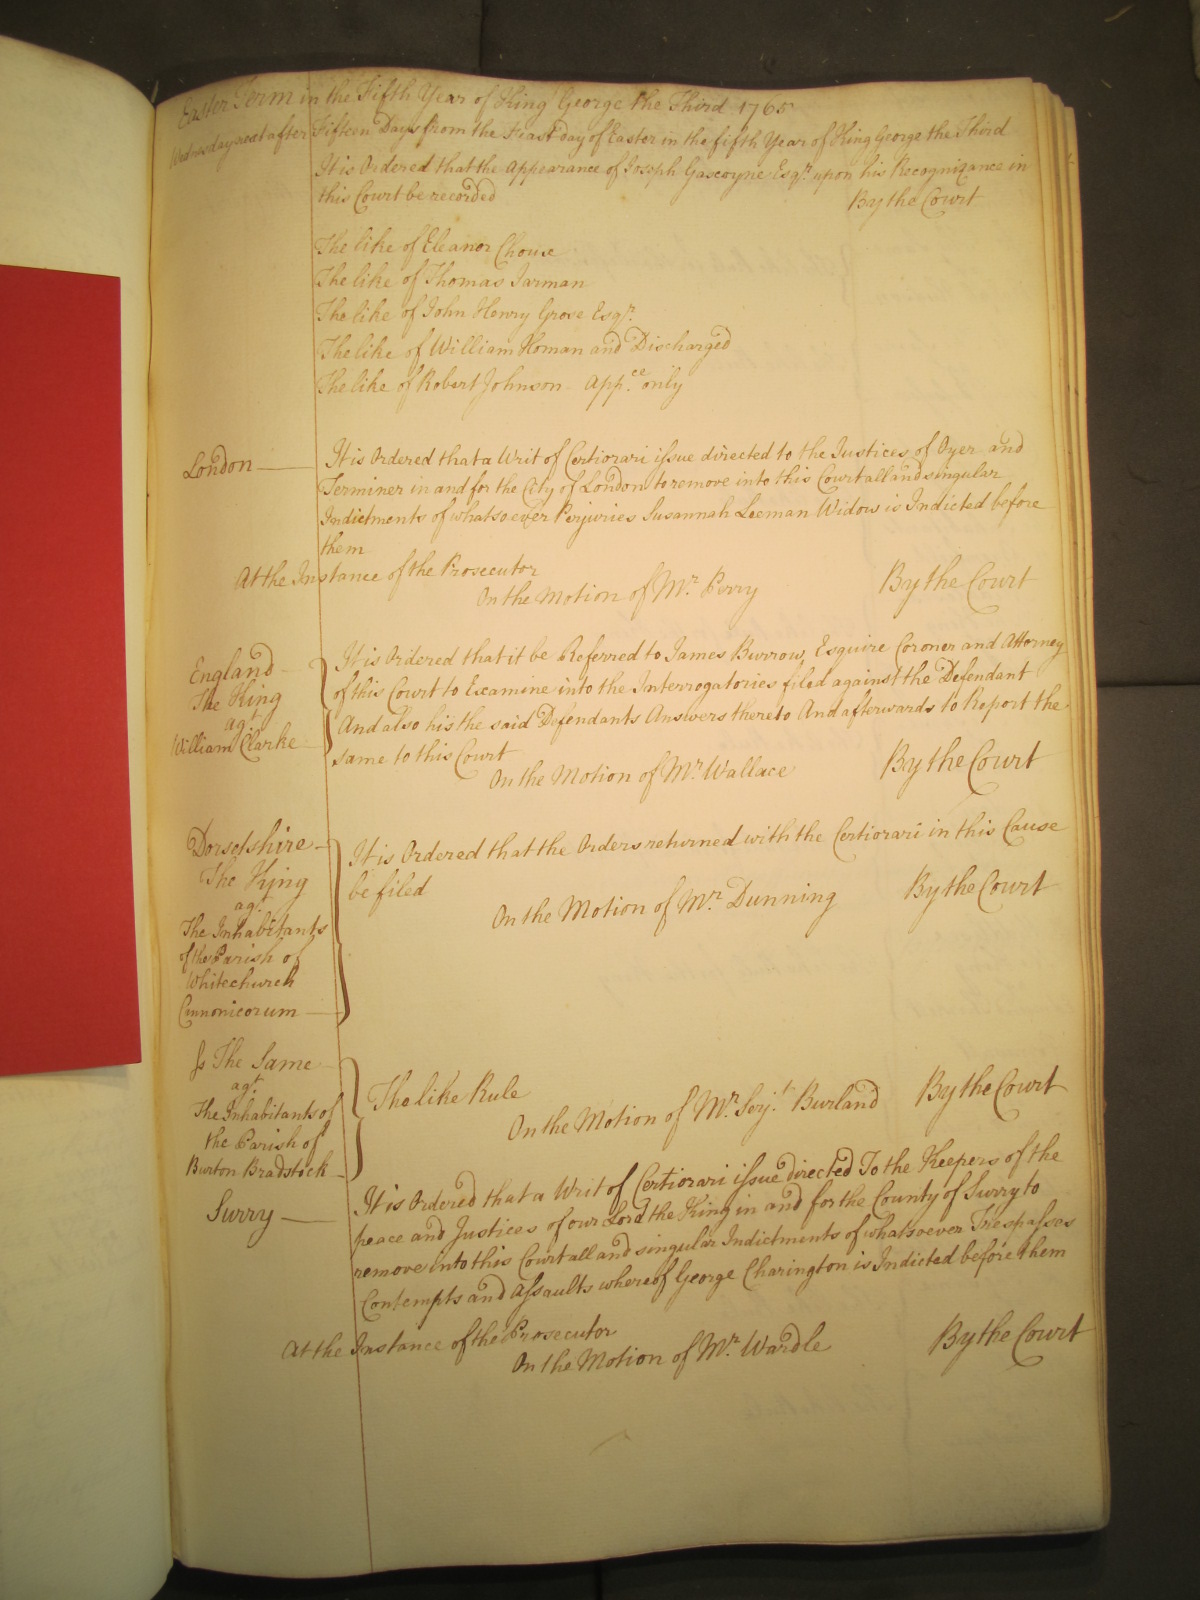 Easter Term in the Fifth Year of King George the Third 1765
Wednesday next after Fifteen Days from the Feast day of Easter in the fifth Year of King George the Third
It is Ordered that the Appearance of Joseph Gascoyne Esqr. upon his Recognizance in
this Court be recorded By the Court
The like of Eleanor Chouse
The like of Thomas Jarman
The like of John Henry Grose Esqr.
The like of William Homan and Discharged
The like of Robert Johnson - Appce. only
London It is Ordered that a Writ of Certiorari issue directed to the Justices of Oyer and
Terminer in and for the City of London to remove into this Court all and singular
Indictments of whatsoever Perjuries Susannah Leeman Widow is Indicted before
them
At the Instance of the Prosecutor
On the Motion of Mr. Perry By the Court
England
The King
agt
William Clarke
It is Ordered that it be Referred to James Burrow, Esquire Coroner and Attorney
of this Court to Examine into the Interrogatories filed against the Defendant
And also his the said Defendants Answers thereto And afterwards to Report the
same to this Court
On the Motion of Mr. Wallace By the Court
Dorsetshire
The King
agt.
The Inhabitants
of the Parish of
Whitechurch
Cannonicorum
It is Ordered that the Orders returned with the Certiorari in this Cause
be filed
On the Motion of Mr. Dunning By the Court
Ss The Same
agt.
The Inhabitants of
the Parish of
Burton Bradstock
The like Rule
On the Motion of Mr. Serjt. Burland By the Court
Surry It is Ordered that a Writ of Certiorari issue directed To the Keepers of the
peace and Justices of our Lord the King in and for the County of Surry to
remove into this Court all and singular Indictments of whatsoever Trespasses
Contempts and Assaults whereof George Charington is Indicted before them
At the Instance of the Prosecutor
On the Motion of Mr. Wardle By the Court